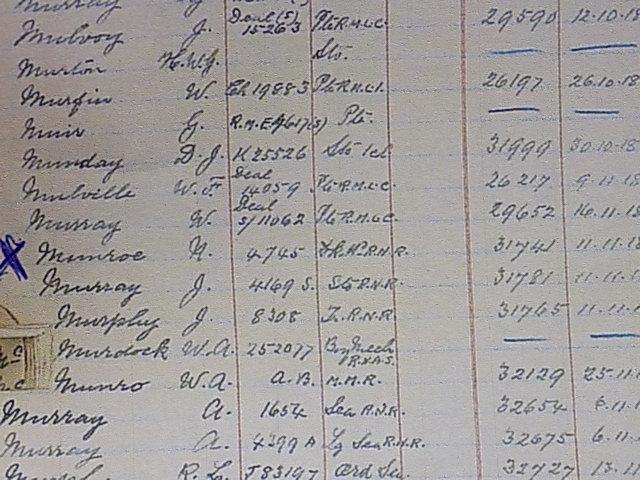 Murray
Mulvoy J. Deal (S) 15263 Pte R.M.L.I. 29590 12.10.18
Murton H.W.G. Sto.
Murfin W. Ch 19883 Pte R.M.L.I. 26197 26.10.18
Muir G. Pte.
Munday D.J. K 25526 Sto 1cl 31999 30.10.18
Mulville W.F. Deal 14059 Pte R.M.L.I. 26217 9.11.18
Murray W. Deal S/11062 Pte R.M.L.I. 29652 16.11.18
X Munroe N. 4745 R.N.R. 31741 11.11.18
Murray J. 4169 S. Sto R.N.R. 31781 11.11.1
Murphy J. 8308 T. R.N.R. 31765 11.11.1
Murdock W.A. 252077 Boy Mech R.N.A.S.
Mc Munro W.A. A.B. M.M.R. 32129 25.11.1
Murray A. 1654 Sea R.N.R. 32654
Murray A. 4399 A Lg Sea R.N.R. 32675 6.11.
R. Lg. J 83197 Ord Sea. 32727 13.11